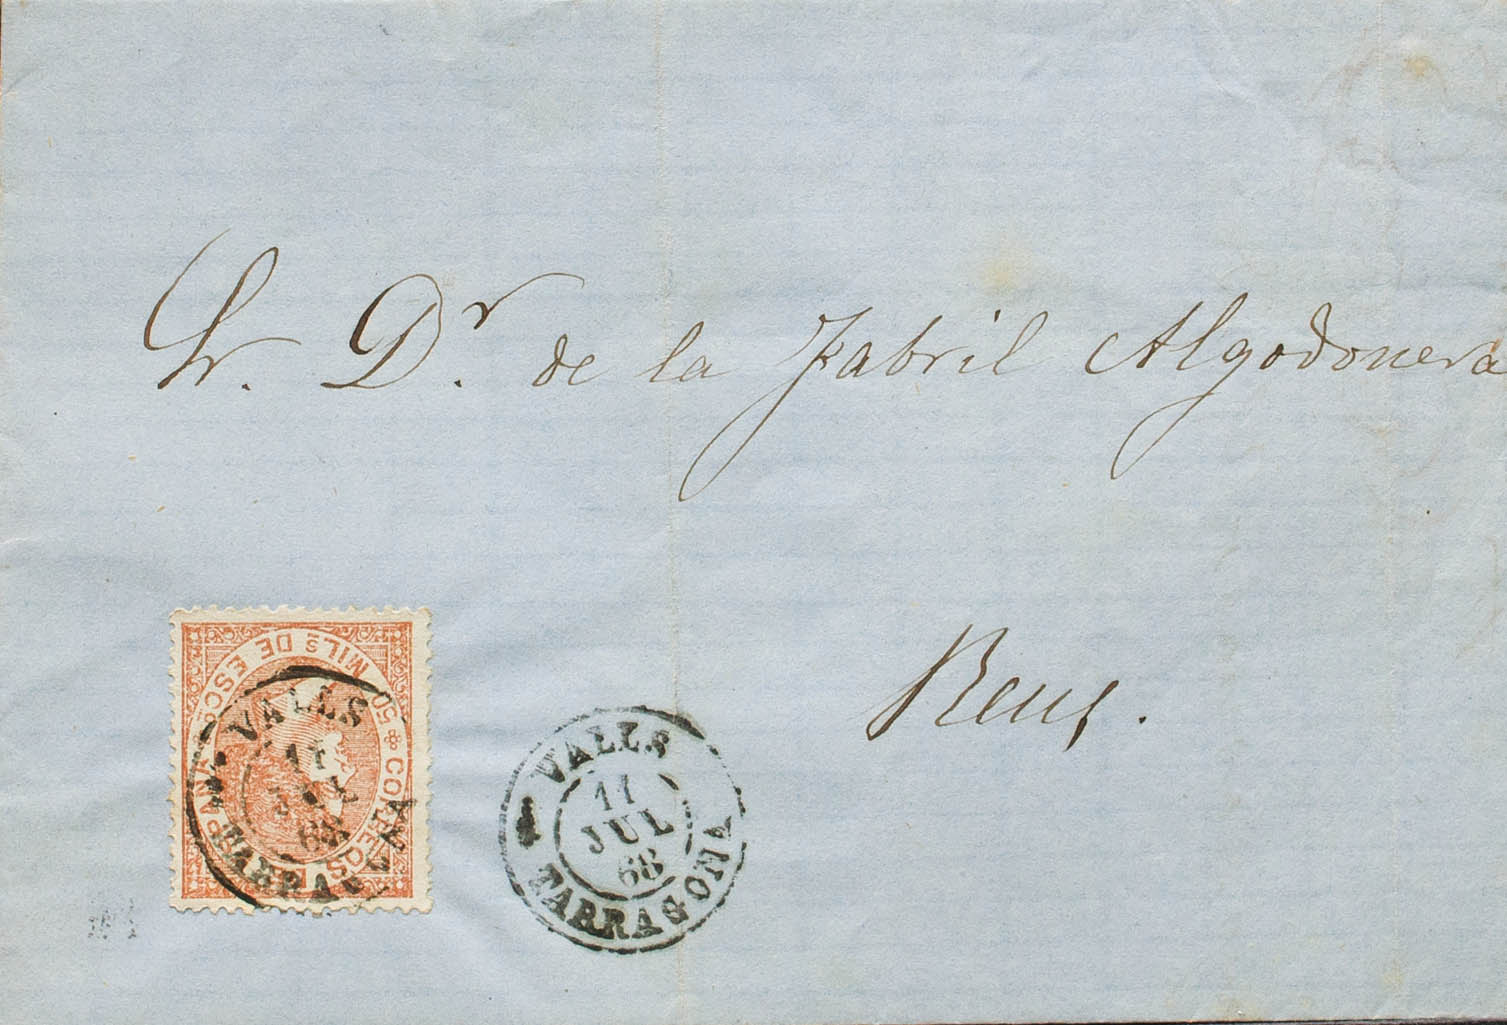 Sr. Dr. de la Fabril Algodonera
Reus.
CORREOS ESPAÑA
50 MILs DE ESCo
VALLS
11
JUL
68
TARRAGONA
VALLS
11
JUL
68
TARRAGONA